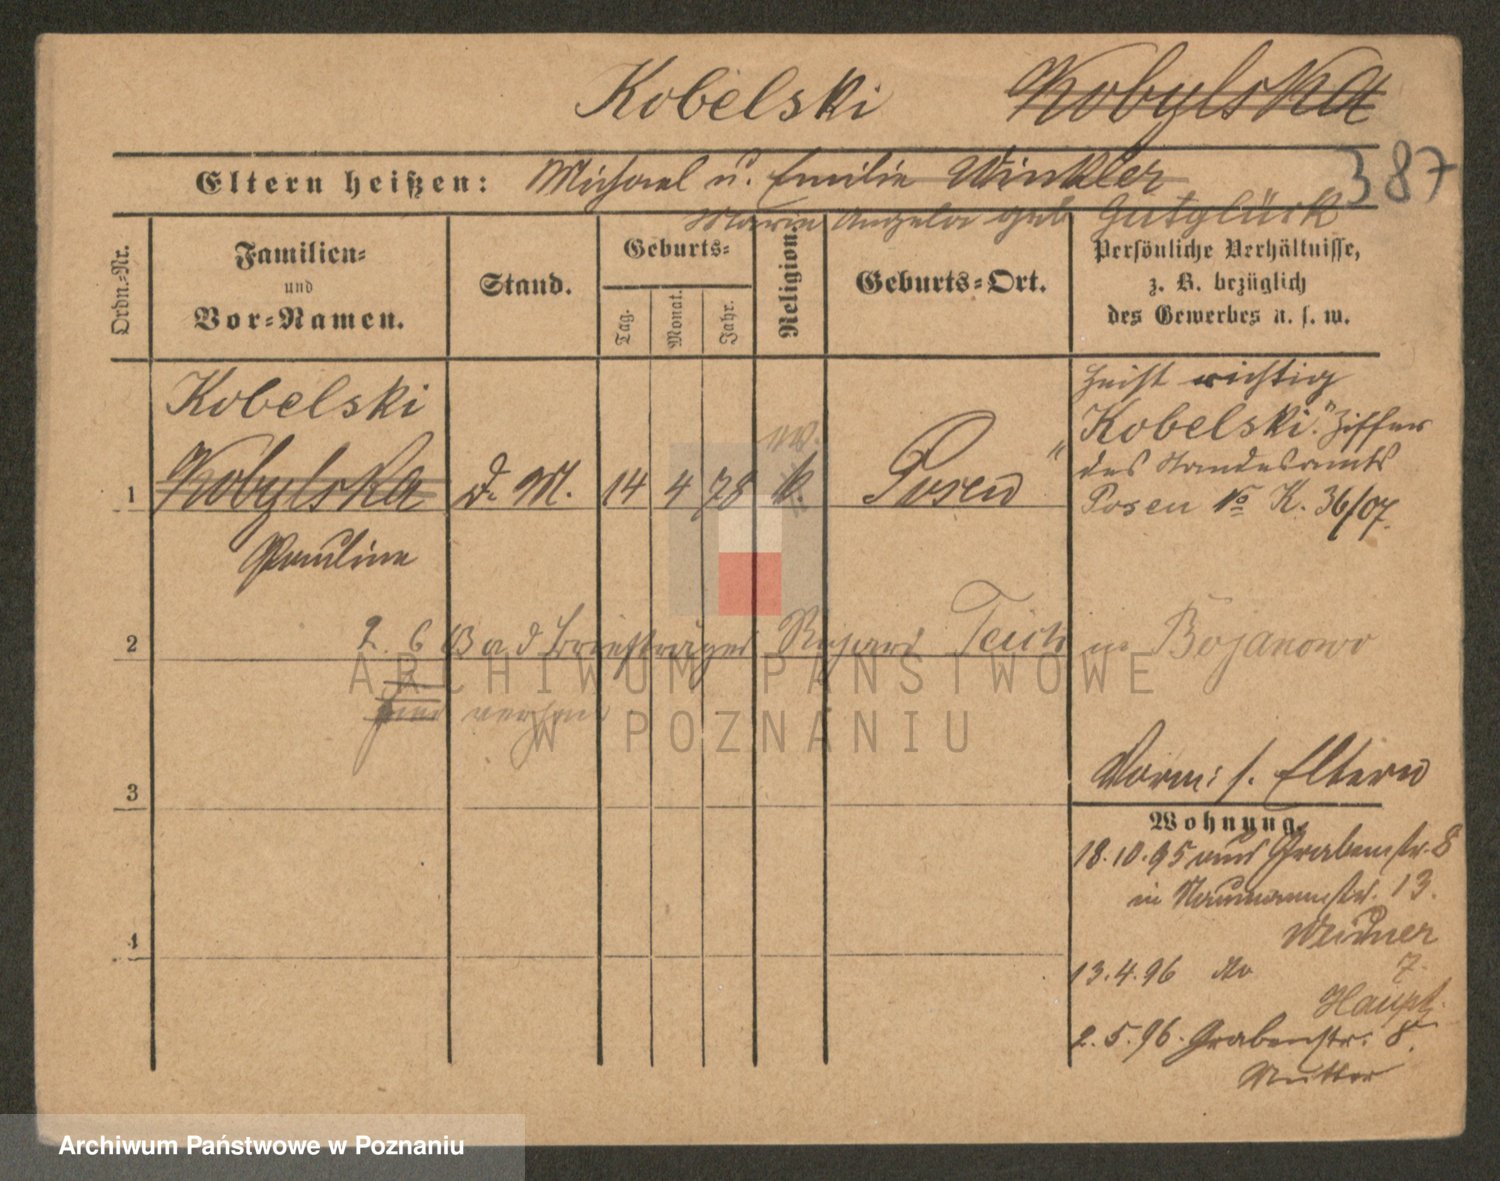 Kobelski Kobylska
387
Eltern heißen: Michael u. Emilie Winkler
Maria Angela geb Gutglück
Ordn.-Nr.
Familien-
und
Vor-Namen.
Stand.
Geburts-
Tag.
Monat.
Jahr.
Religion.
Geburts-Ort.
Persönliche Verhältnisse,
z. B. bezüglich
des Gewerbes u. s. w.
Kobelski
1 Kobylska d. M. 14 4 78 k. Posen
Pauline
heißt richtig
Kobelski." Ziffer
des Standesamts
Posen No K. 36/07.
2
2. 6 Briefträger Teich in Bojanowo
3
Vorm: s. Eltern
Wohnung.
18.10.95 aus Grabenstr. 8
in Naumannstr. 13.
Weidner
4
13.4.96 do 7.
Haupt.
2.5.96. Grabenstr. 8.
Mutter
ARCHIWUM PAŃSTWOWE
W POZNANIU
Archiwum Państwowe w Poznaniu